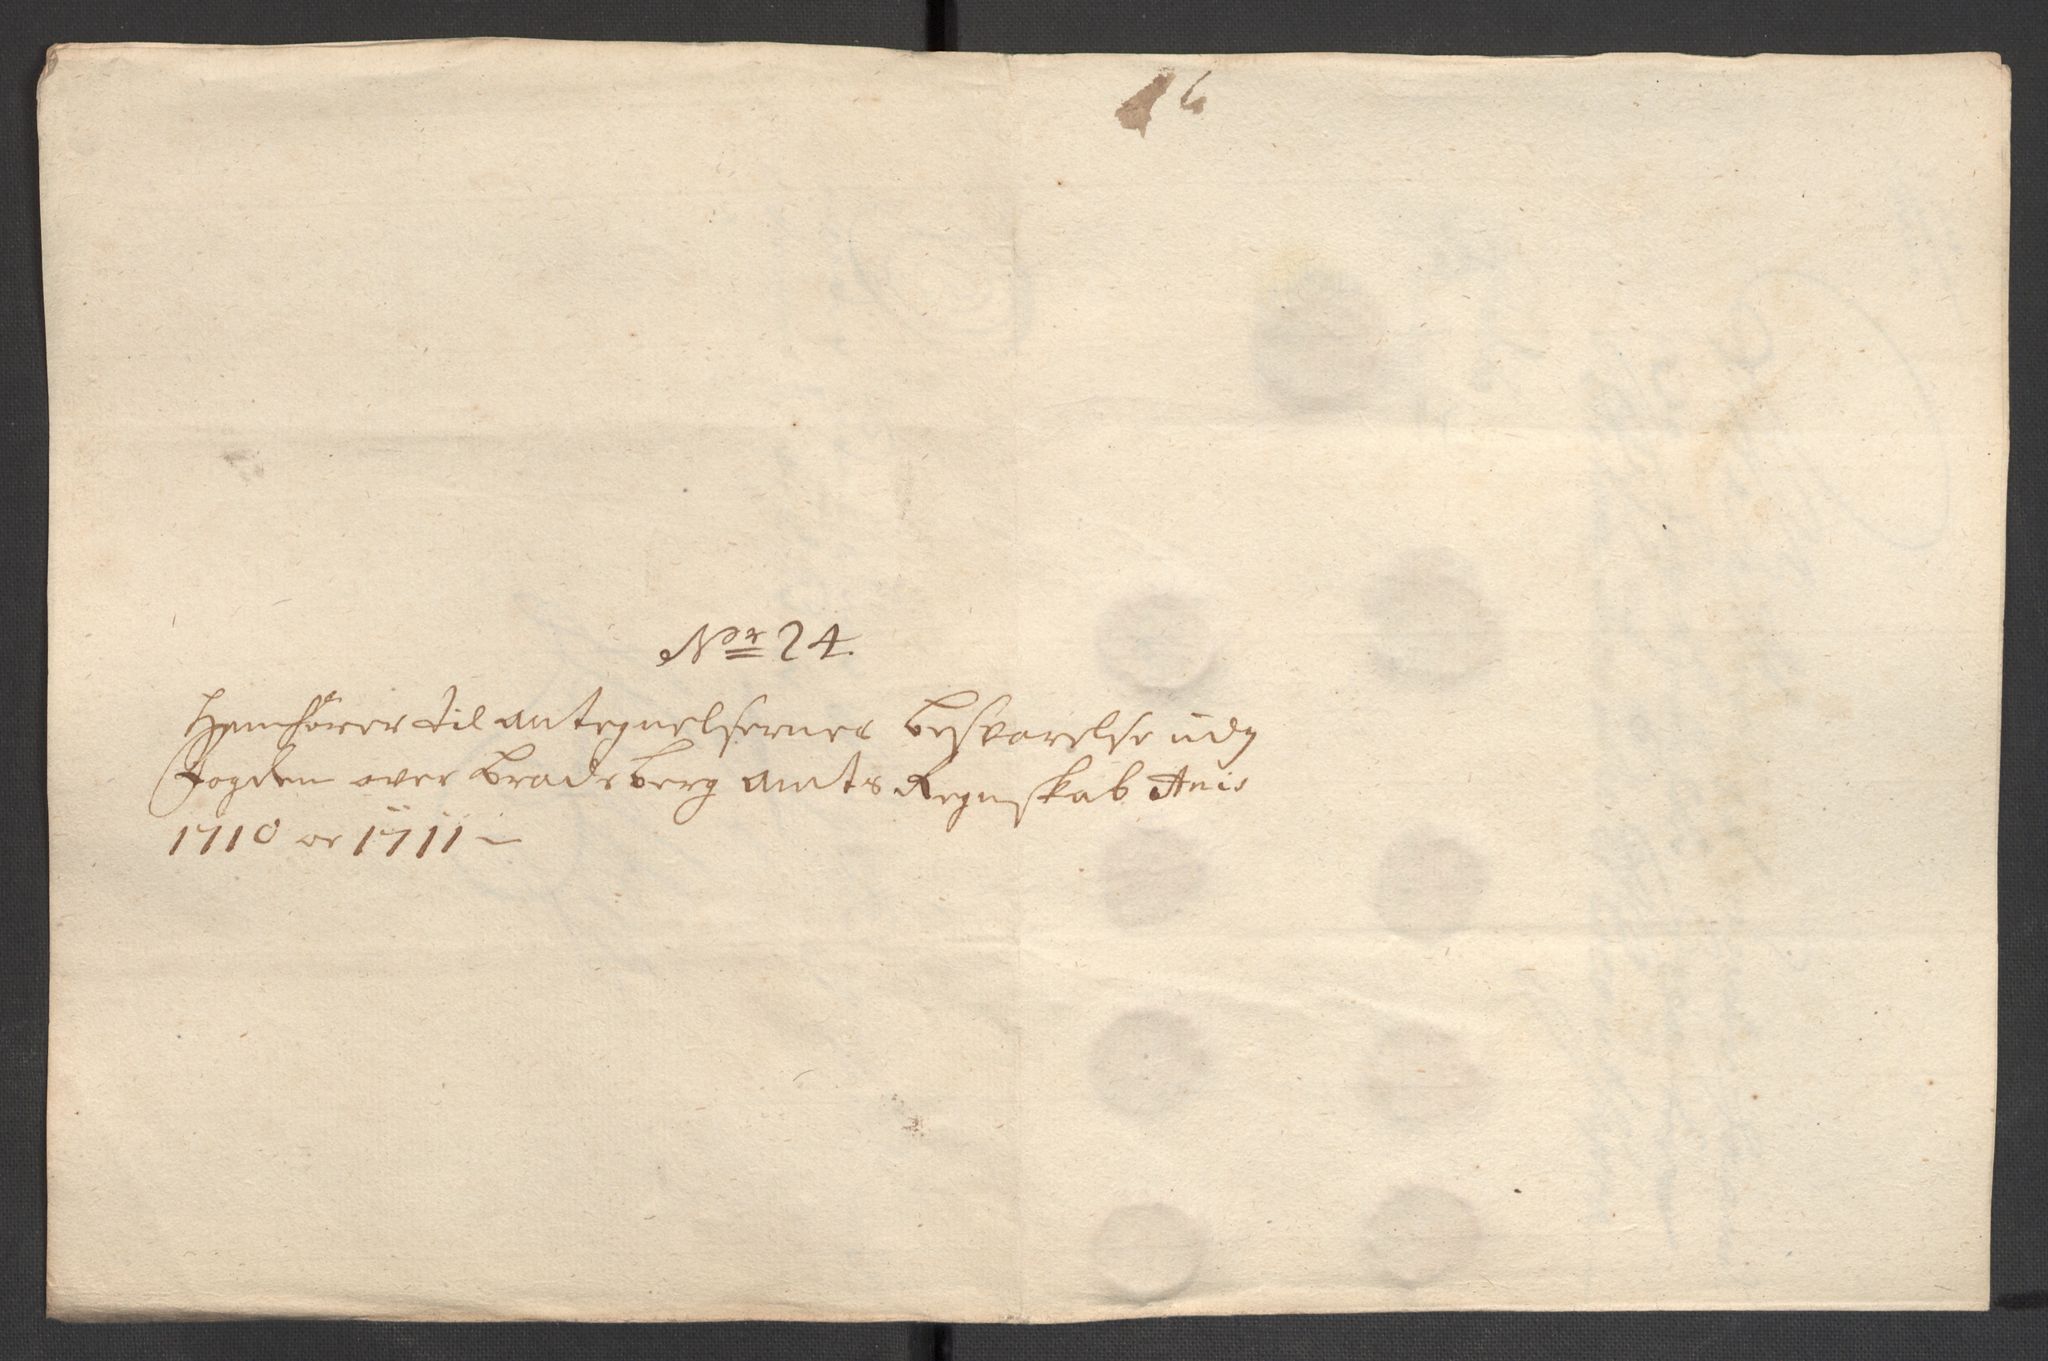 No: 24.
Henhörer til antegnelsernes besvarelse udj
Fogden over Bradsberg amts Regnskab Anis
1710 oc 1711